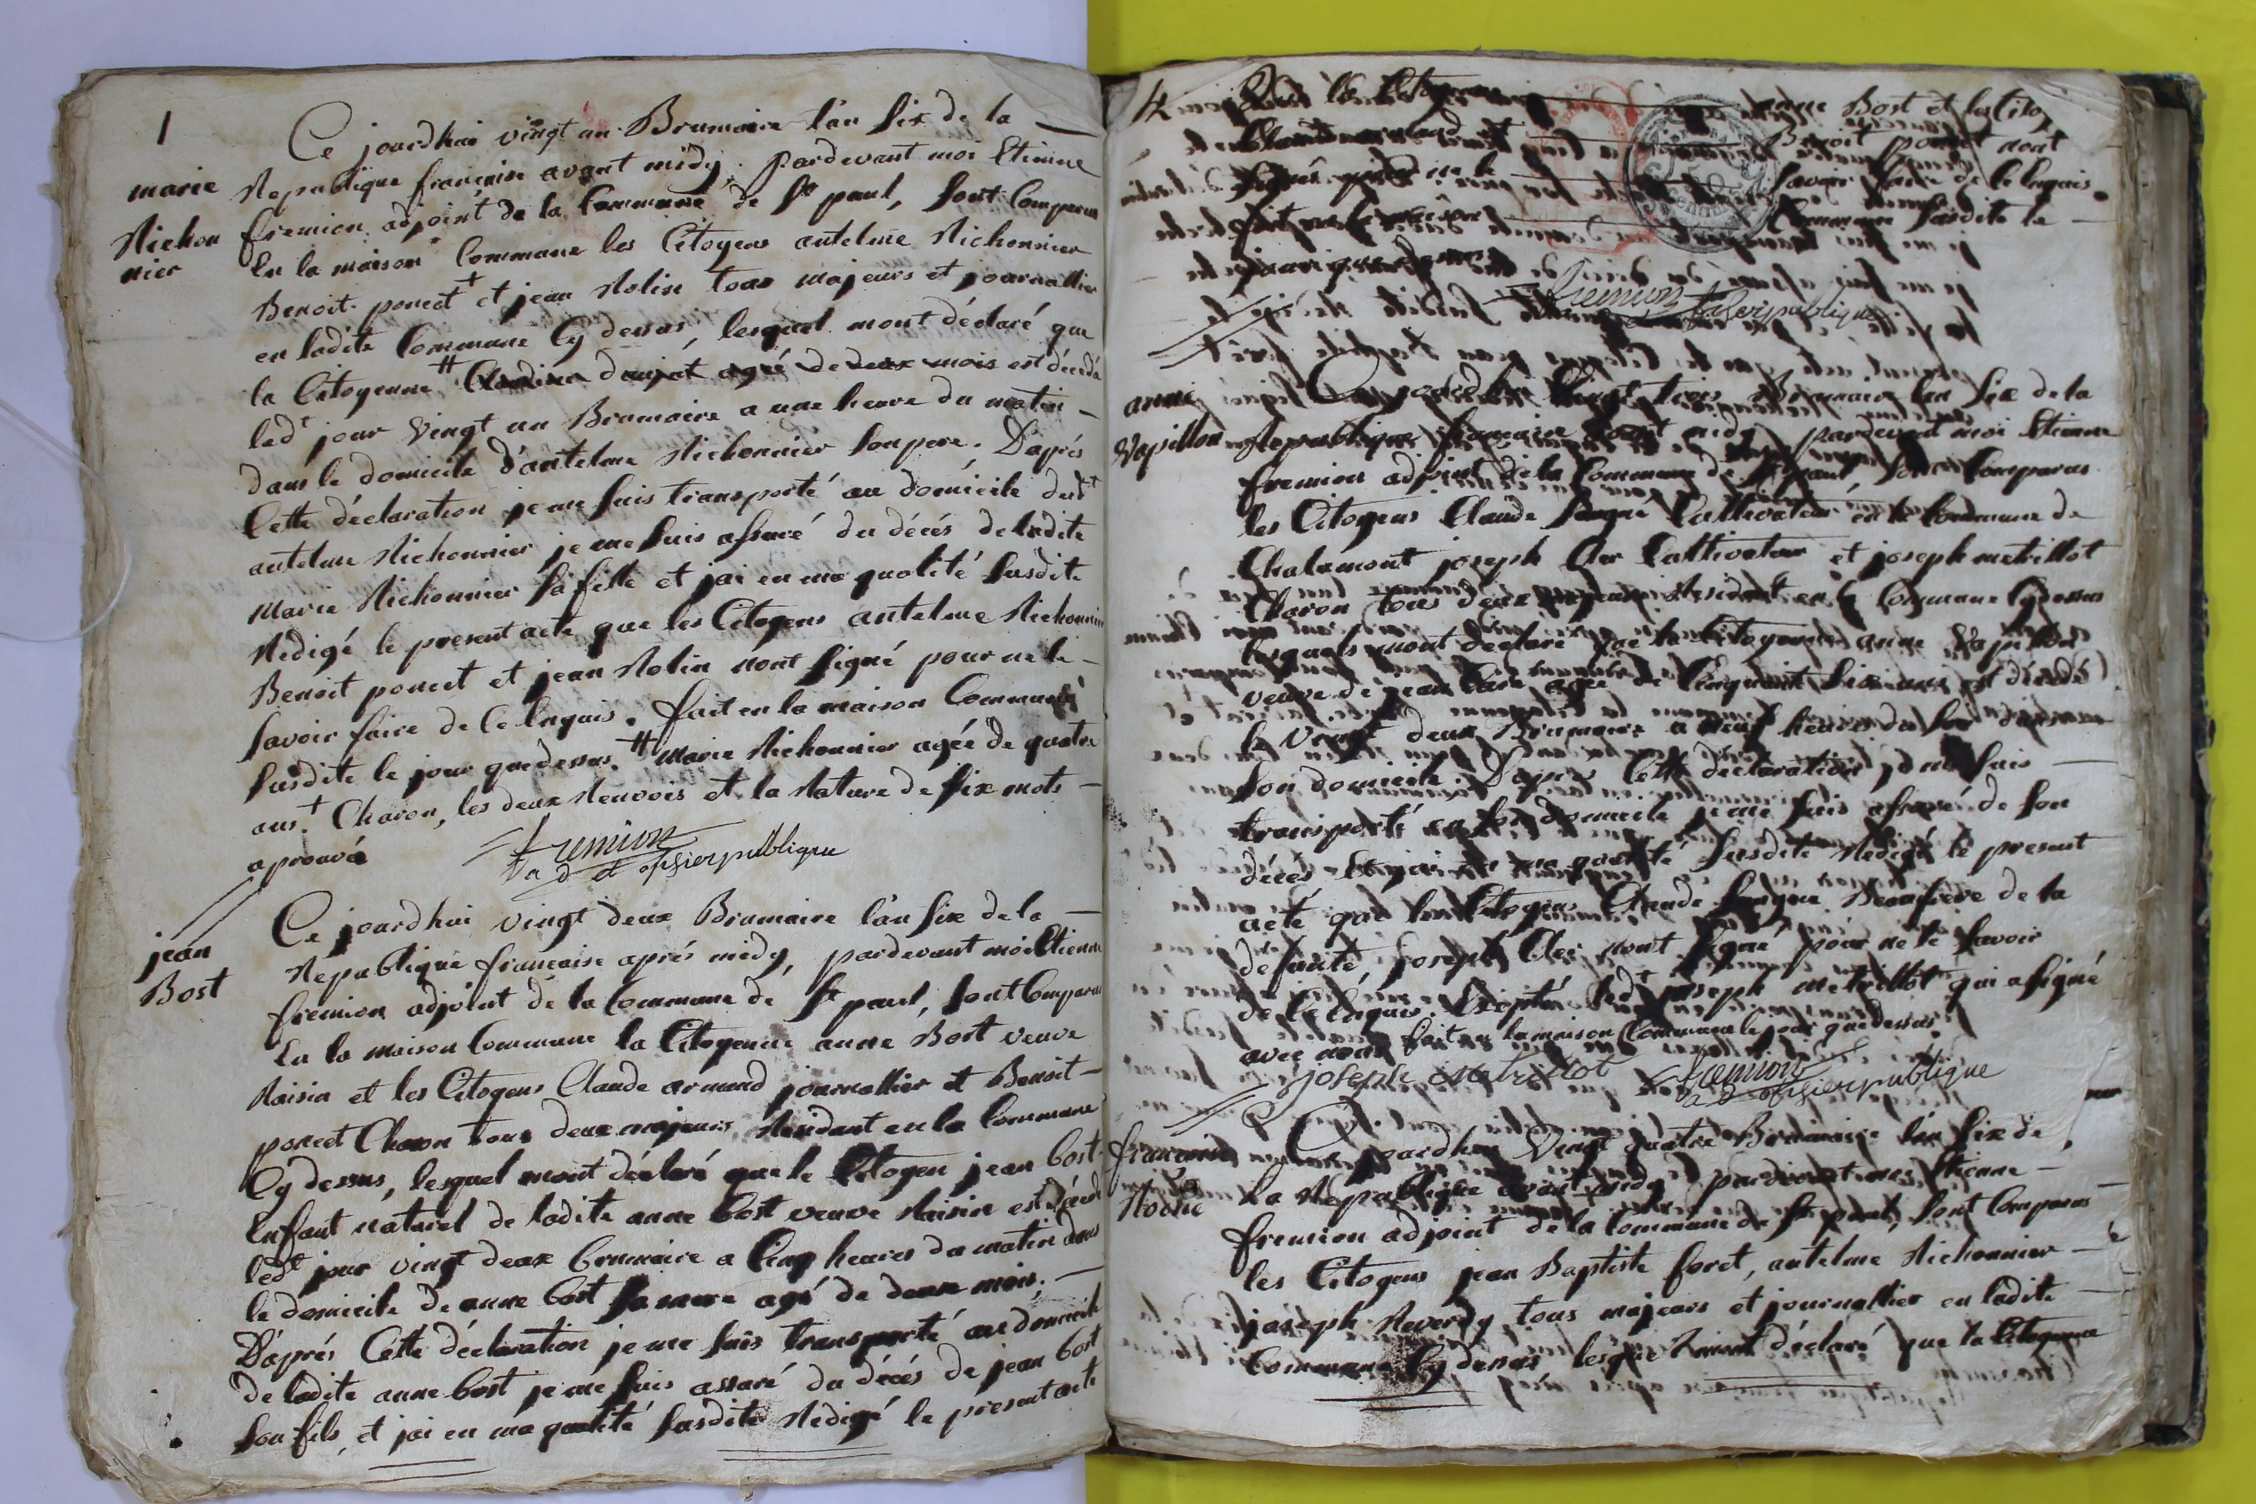 1
marie
Nichon
nier
Ce jourdhui vingt un Brumaire l'an six de la
Republique française avant midy. pardevant moi Etienne
fremion adjoint de la Commune de St paul, sont Comparus
En la maison Commune les Citoyens antelme Nichonnier
Benoit poncet + et jean Rolin tous majeurs et journallier
en ladite Commune Cy dessus, lesquel mont déclaré que
la Citoyenne # agée de deux mois est décédé
ledt jour vingt un Brumaire a une heure du matin
dans le domicile d'antelme Nichonnier son pere. D'aprés
Cette déclaration je me suis transporté au domicile dudt
antelme Nichonnier je me suis assuré du décés de ladite
Marie Nichonnier sa fille et jai en ma qualité susdite
Redigé le present acte que les Citoyens antelme Nichonnier
Benoit poncet et jean Rolin nont signé pour ne le
savoir faire de Ce Enquis. fait en la maison Commune
susdite le jour que dessus. # Marie Nichonnier agée de quatre
ans. + Charon, les deux Renvois et la Rature de six mots
aprouvé
fremion
ad et ofisier publique
jean
Bost
Ce jourdhui vingt deux Brumaire l'an six de la
Republique française aprés midy, pardevant moi Etienne
fremion adjoint de la Commune de St paul, sont Comparus
En la maison Commune la Citoyenne anne Bost veuve
Raisin et les Citoyens Claude armand journallier et Benoit
poncet Charon tous deux majeurs Residant en la Commune
Cy dessus, lesquel mont déclaré que le Citoyen jean bost
Enfant naturel de ladite anne bost veuve Raisin est décédé
ledt jour vingt deux brumaire a Cinq heures du matin dans
le domicile de anne bost sa mere agé de deux mois.
D'aprés Cette déclaration je me suis transporté au domicile
de ladite anne bost je me suis assuré du décés de jean bost
son fils, et jai en ma qualité susdite Redigé le present acte
que la Citoyenne anne Bost et les Citoy
Claude armand et Benoit poncet nont
signé pour ne le savoir faire de Ce Enquis.
fait en la maison Commune susdite le
jour que dessus
fremion
ad ofisier publique
anne
Vapillon
Ce jourdhui vingt trois Brumaire l'an six de la
Republique française avant midy pardevant moi Etienne
fremion adjoint de la Commune de St paul, sont Comparus
les Citoyens Claude Cultivateur en la Commune de
Chalamont joseph Cler Cultivateur et joseph metrillot
Charon tous deux majeurs Residant en la Commune Cy dessus
lesquels mont déclaré que la Citoyenne anne Vapillon
veuve de jean agée de Cinquante six ans est décédé
le vingt deux Brumaire a neuf heures du soir dans
son domicile. D'aprés Cette déclaration je me suis
transporté en son domicile je me suis assuré de son
décés et jai en ma qualité susdite Redigé le present
acte que les Citoyens Claude Beaufrere de la
defunte, joseph Cler nont signé pour ne le savoir
de Ce Enquis. Excepté ledt joseph metrillot qui a signé
avec nous fait en la maison Commune le jour que dessus.
joseph metrillot fremion
ad ofisier publique
francoise
Roche
Ce jourdhui vingt quatre Brumaire l'an six de
la Republique avant midy pardevant moi Etienne
fremion adjoint de la Commune de St paul, sont Comparus
les Citoyens jean Baptiste foret, antelme Nichonnier
joseph Reverdy tous majeurs et journallier en ladite
Commune Cy dessus lesquel mont déclaré que la Citoyenne